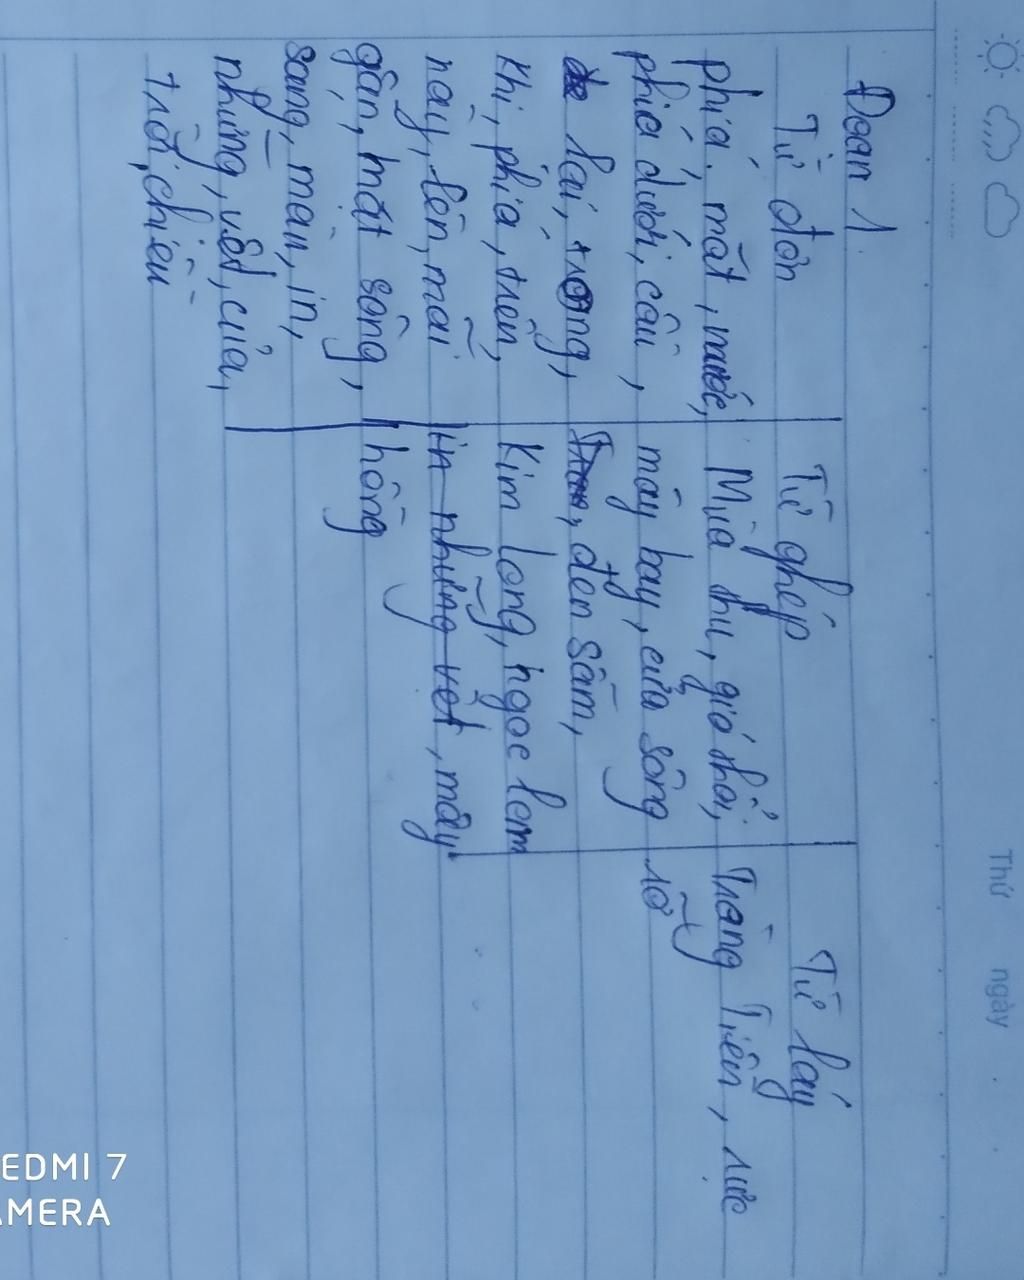 Thứ ngày
Đoạn 1.
Từ đơn
Từ ghép
Từ láy
phía, mặt, nước,
phía dưới, cầu,
lại, trong,
khi, phía, trên,
này, lên, mái
gần, mặt sông,
sang, màu, in,
những, vệt, của,
trời, chiều
Mùa thu, gió thổi,
mây bay, cửa sông
đen sẫm,
Kim long, ngọc lam
in những vệt, mây
hồng
Tràng Tiền, rực
rỡ
REDMI 7
CAMERA